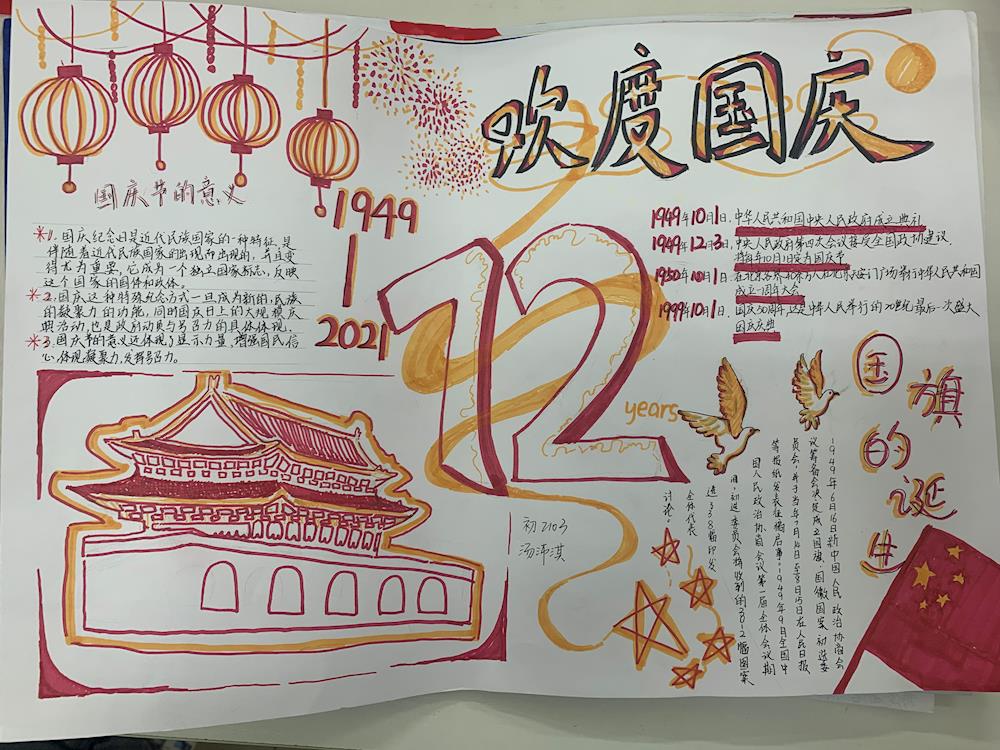 欢度国庆
国庆节的意义
*1. 国庆纪念日是近代民族国家的一种特征,是
伴随着近代民族国家的出现而出现的,并且变
得尤为重要。它成为一个独立国家标志,反映
这个国家的国体和政体。
*2. 国庆这种特殊纪念方式一旦成为新的、民族
的凝聚力的功能,同时国庆日上的大规模庆
典活动,也是政府动员与号召力的具体体现,
*3. 国庆节的意义还体现了显示力量、增强国民信
心,体现凝聚力,发挥号召力。
1949
2021
72
years
1949年10月1日,中华人民共和国中央人民政府成立典礼
1949年12月3日,中央人民政府第四次会议接受全国政协建议,
将每年10月1日定为国庆节
1950年10月1日,在天安门广场举行中华人民共和国
成立一周年大会
1999年10月1日,国庆50周年,这是中华人民举行的20世纪最后一次盛大
国庆庆典
国旗的诞生
1949年6月16日新中国人民政治协商会
议筹备会决定成立国旗、国徽国案初选委
员会,并于当年7月14日至8月15日在人民日报
等报纸发表征稿启事。1949年9月全国中
国人民政治协商会议第一届全体会议期
间,初选委员会将收到的3012幅图案
选38幅印发
全体代表
讨论。
初2103
汤沛淇